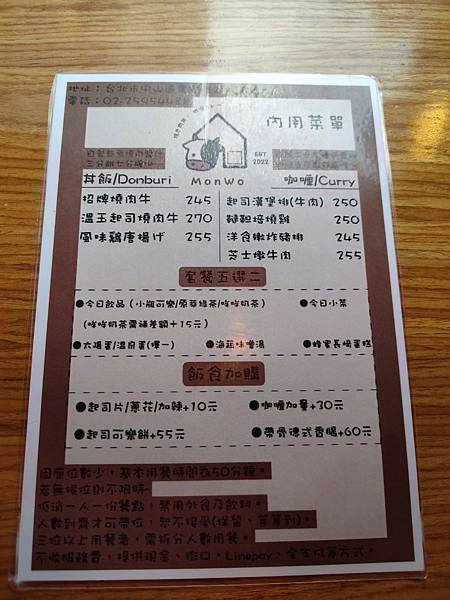 地址：台北市中山區
電話：02-2595448
內用菜單
EST 2022
MonWo
丼飯/Donburi
招牌燒肉牛 245
溫玉起司燒肉牛 270
風味鶏唐揚げ 255
咖喱/Curry
起司漢堡排(牛肉) 250
韃靼焙燒雞 250
洋食嫩炸豬排 245
芝士燉牛肉 255
套餐五選二
●今日飲品（小瓶可樂/原萃綠茶/哞哞奶茶） ●今日小菜
（哞哞奶茶需補差額+15元）
●太陽蛋/溫泉蛋(擇一) ●海菇味噌湯 ●蜂蜜長崎蛋糕
飯食加購
●起司片/蔥花/加辣+10元 ●咖喱加量+30元
●起司可樂餅+55元 ●帶骨德式香腸+60元
因座位數少，基本用餐時間為50分鐘。
若無候位則不限時~
低消一人一份餐點，禁用外食及飲料。
人數到齊才可帶位，恕不接受(保留、等等到)。
三位以上用餐者，需拆分人數用餐。
不收服務費，提供現金、街口、Linepay、全支付等方式。